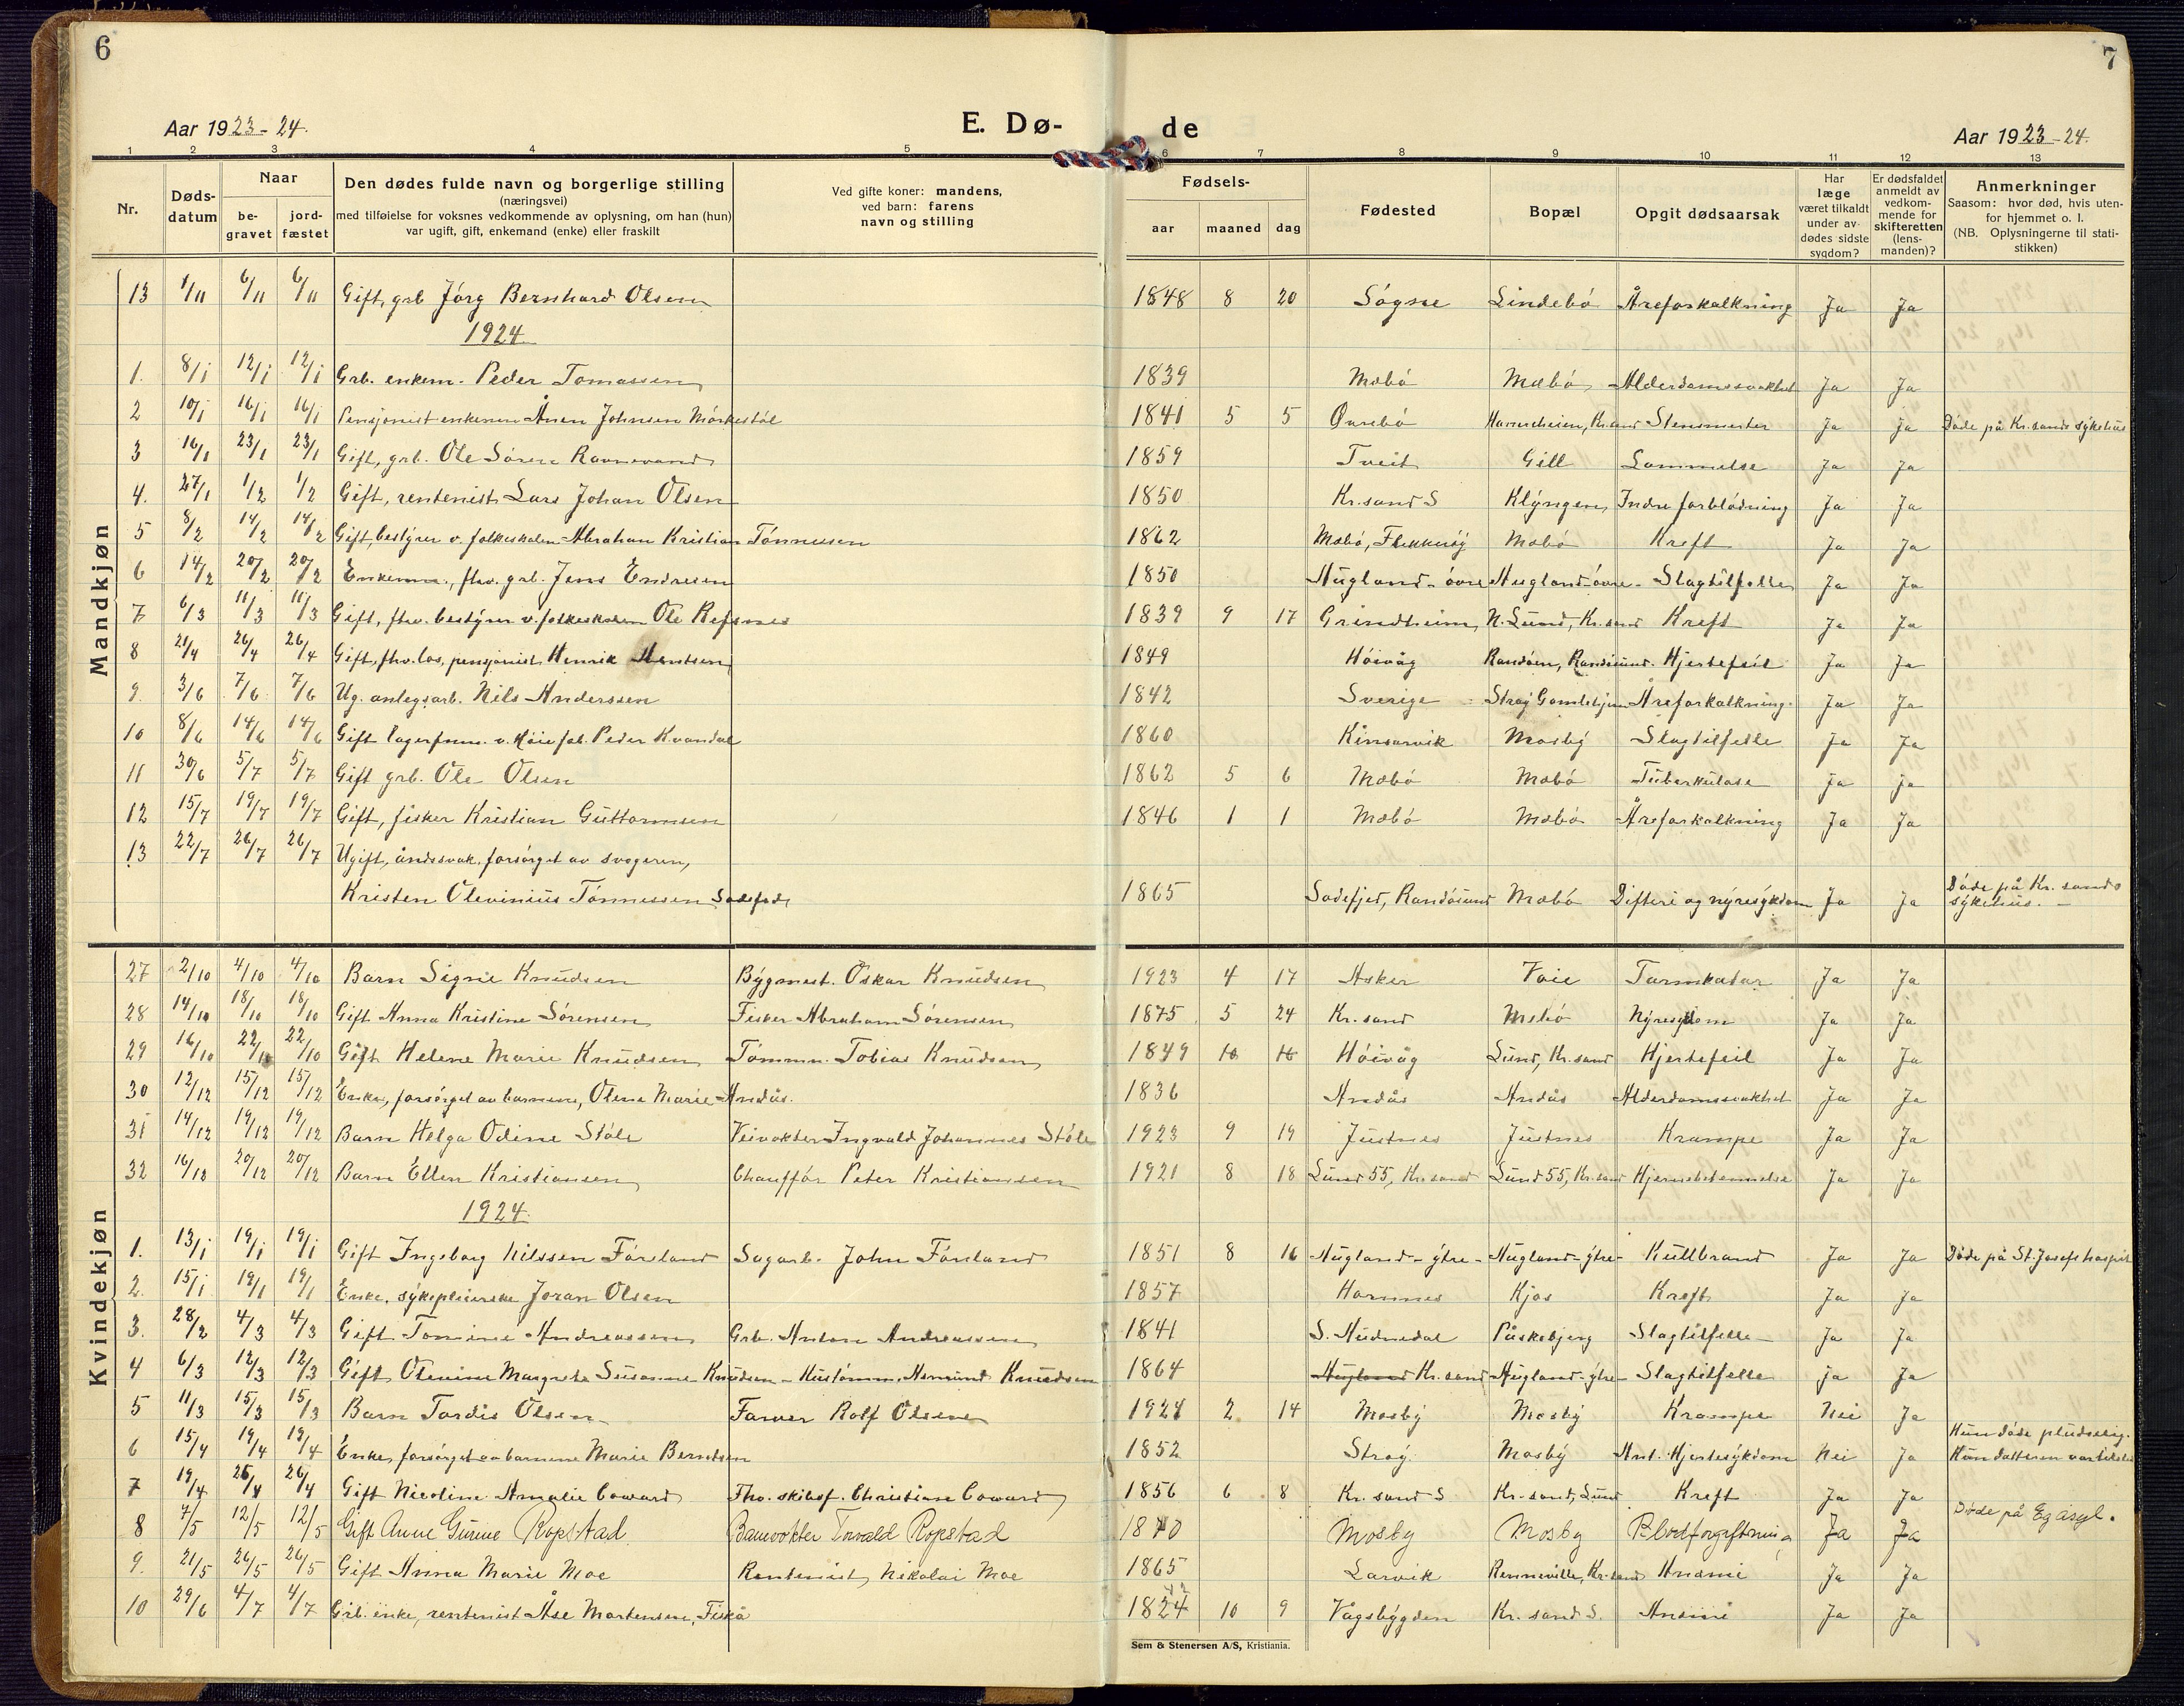 6
7
Aar 1923-24.
E. Dø-
de
Aar 1923-24.
1 2 3 4 5 6 7 8 9 10 11 12 13
Nr.
Døds-datum
Naar
be-gravet
jord-fæstet
Den dødes fulde navn og borgerlige stilling
(næringsvei)
med tilføielse for voksnes vedkommende av oplysning, om han (hun)
var ugift, gift, enkemand (enke) eller fraskilt
Ved gifte koner: mandens,
ved barn: farens
navn og stilling
Fødsels-
aar maaned dag
Fødested
Bopæl
Opgit dødsaarsak
Har læge været tilkaldt under av-dødes sidste sygdom?
Er dødsfaldet anmeldt av vedkom-mende for skifteretten (lens-manden)?
Anmerkninger
Saasom: hvor død, hvis uten-for hjemmet o. l.
(NB. Oplysningerne til stati-stikken)
Mandkjøn
13 1/11 6/11 6/11 Gift, grb Jörg Bernhard Olsen 1848 8 20 Sögne Lindebö Åreforkalkning Ja Ja
1924
1. 8/1 12/1 12/1 Grb. enkem. Peder Tomassen 1839 Mæbö Mæbö Alderdomssvakhet Ja Ja
2 10/1 16/1 16/1 Pensjonist enkem Ånen Johnsen Mörkestöl 1841 5 5 Övrebö Hamreheien, Kr.sand Ja Ja Döde på Kr.sands sykehus
3 16/1 23/1 23/1 Gift, grb. Ole Sören Ravnevand 1859 Tveit Gill Lammelse Ja Ja
4. 27/1 1/2 1/2 Gift, rentenist Lars Johan Olsen 1850 Kr.sand S Klyngen Indre forblödning Ja Ja
5 8/2 14/2 14/2 Gift, bestyrer v. folkeskolen Abraham Kristian Tönnesen 1862 Mæbö, Flekkeröy Mæbö Kreft Ja Ja
6 14/2 20/2 20/2 Enkem., fhv. grb. Jens Endresen 1850 Augland-övre Augland-övre Slagtilfelle Ja Ja
7 6/3 11/3 11/3 Gift, fhv. bestyrer v. folkeskolen Ole Refsnes 1839 9 17 Grindheim N. Lund, Kr.sand Kreft Ja Ja
8 21/4 26/4 26/4 Gift, fhv. los, pensjonist Henrik Arntsen 1849 Höivåg Randöen, Randösund Hjertefeil Ja Ja
9. 3/6 7/6 7/6 Ug. anlegsarb. Nils Anderssen 1842 Sverige Stray Gamlehjem Åreforkalkning. Ja Ja
10 8/6 14/6 14/6 Gift lagerfmm. v. Höie fab. Peder Kvandal 1860 Kinsarvik Mosby Slagtilfelle Ja Ja
11 30/6 5/7 5/7 Gift grb. Ole Olsen 1862 5 6 Mæbö Mæbö Tuberkulose Ja Ja
12 15/7 19/7 19/7 Gift, fisker Kristian Guttormsen 1846 1 1 Mæbö Mæbö Åreforkalkning Ja Ja
13 22/7 26/7 26/7 Ugift, åndssvak, forsörget av svogeren,
Kristen Olevinius Tönnessen 1865 Sodefjed, Randösund Mæbö Difteri og nyresykdom Ja Ja Döde på Kr. sands sykehus. -
Kvindekjøn
27 2/10 4/10 4/10 Barn Signe Knudsen Bygmest. Oskar Knudsen 1923 4 17 Asker Voie Tarmkatar Ja Ja
28 14/10 18/10 18/10 Gift Anna Kristine Sörensen Fisker Abraham Sörensen 1875 5 24 Kr. sand Mæbö Nyresykdom Ja Ja
29 16/10 22/10 22/10 Gift Helene Marie Knudsen Tömmm. Tobias Knudsen 1849 10 16 Höivåg Lund, Kr. sand Hjertefeil Ja Ja
30 12/12 15/12 15/12 Enke, forsörget av barnene, Olene Marie Andås. 1836 Andås Andås Alderdomssvakhet Ja Ja
31 14/12 19/12 19/12 Barn Helga Odine Stöle Veivokter Ingvald Johannes Stöle 1923 9 19 Justnes Justnes Krampe Ja Ja
32 16/12 20/12 20/12 Barn Ellen Kristiansen Chaufför Peter Kristiansen 1921 8 18 Lund 55, Kr. sand Lund 55, Kr. sand Hjernebetennelse Ja Ja
1924
1. 13/1 19/1 19/1 Gift Ingeborg Nilssen Föreland Sagarb. John Föreland 1851 8 16 Augland-ytre- Augland-ytre- Kullbrand Ja Ja Döde på St. Josefs hospit
2. 15/1 19/1 19/1 Enke, sykepleierske Joran Olsen 1857 Hornnes Kjos Kreft Ja Ja
3. 28/2 4/3 4/3 Gift Tomine Andreassen Grb. Anton Andreassen 1841 S. Audnedal Påskebjerg Slagtilfelle Ja Ja
4 6/3 12/3 12/3 Gift Olenine Margrete Susanne Knudsen - Hustömm. Asmund Knudsen 1864 Augland Kr. sand Augland-ytre- Slagtilfelle Ja Ja
5 11/3 15/3 15/3 Barn Tordis Olsen Farver Rolf Olsen 1924 2 14 Mosby Mosby Krampe Nei Ja Hun döde pludselig.
6 15/4 19/4 19/4 Enke, forsörget av barnene Marie Berntsen 1852 Stray Mosby Ant. Hjertesykdom Nei Ja
7 19/4 26/4 26/4 Gift Nicoline Amalie Coward Fhv. skibsf. Christian Coward 1856 6 8 Kr. sand S Kr. sand, Lund Kreft Ja Ja
8 7/5 12/5 12/5 Gift Anne Gurine Ropstad Banevokter Torvald Ropstad 1870 Mosby Mosby Blodforgiftning Ja Ja Döde på Eg asyl.
9. 21/5 26/5 26/5 Gift Anna Marie Moe Rentenist Nikolai Moe 1865 Larvik Renneville, Kr. sand Anæmi Ja Ja
10 29/6 4/7 4/7 Grb. enke, rentenist Åse Mortensen, Fiskå 1824 10 9 Vågsbygden Kr. sand S. Anæmi Ja Ja
Sem & Stenersen A/S, Kristiania.